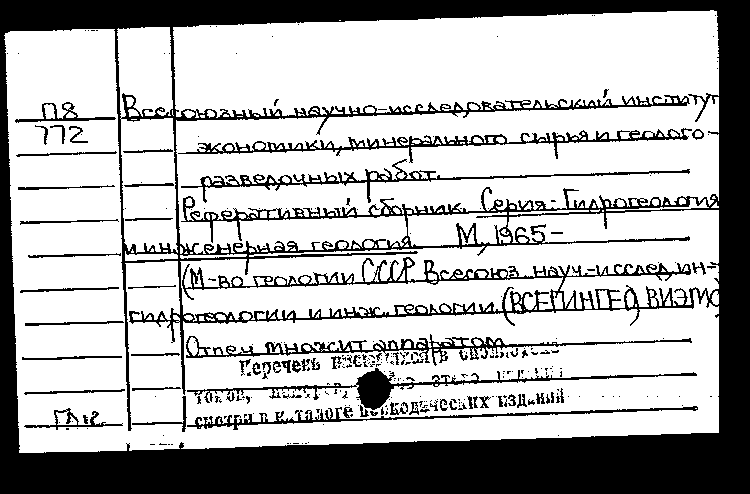 П8 Всесоюзный научно-исследовательский институт
772 экономики, минерального сырья и геолого-
разведочных работ.
Реферативный сборник. Серия: Гидрогеология
и инженерная геология. М., 1965-
(М-во геологии СССР. Всесоюз. науч.-исслед. ин-т
гидрогеологии и инж. геологии (ВСЕГИНГЕО), ВИЭМС)
Отпеч. множит. аппаратом
Перечень имеющихся в библиотеке
томов, этого издания
смотри в каталоге периодических изданий